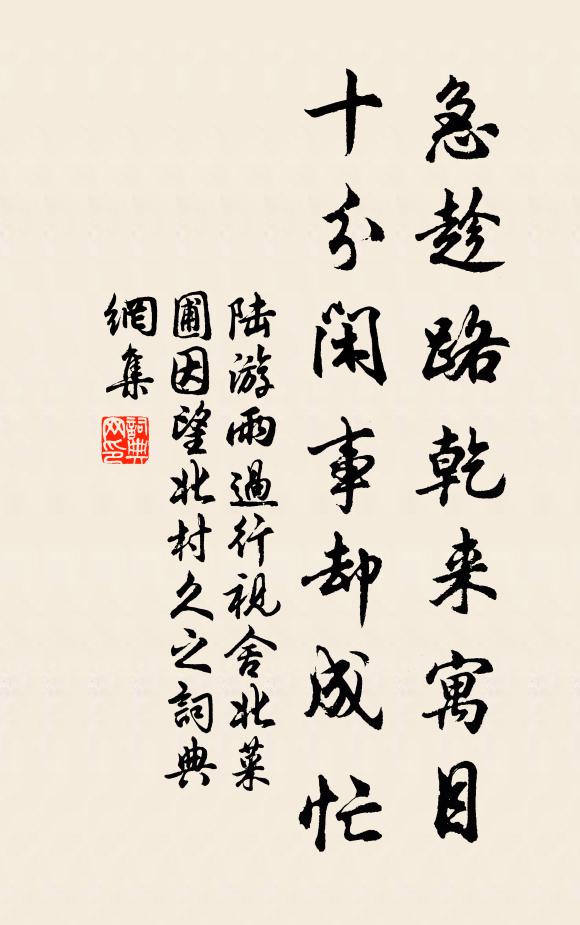 急趁路乾来寓目
十分闲事却成忙
陆游雨過行視舍北菜
圃因望北村久之詞典
網集
詞典
网印